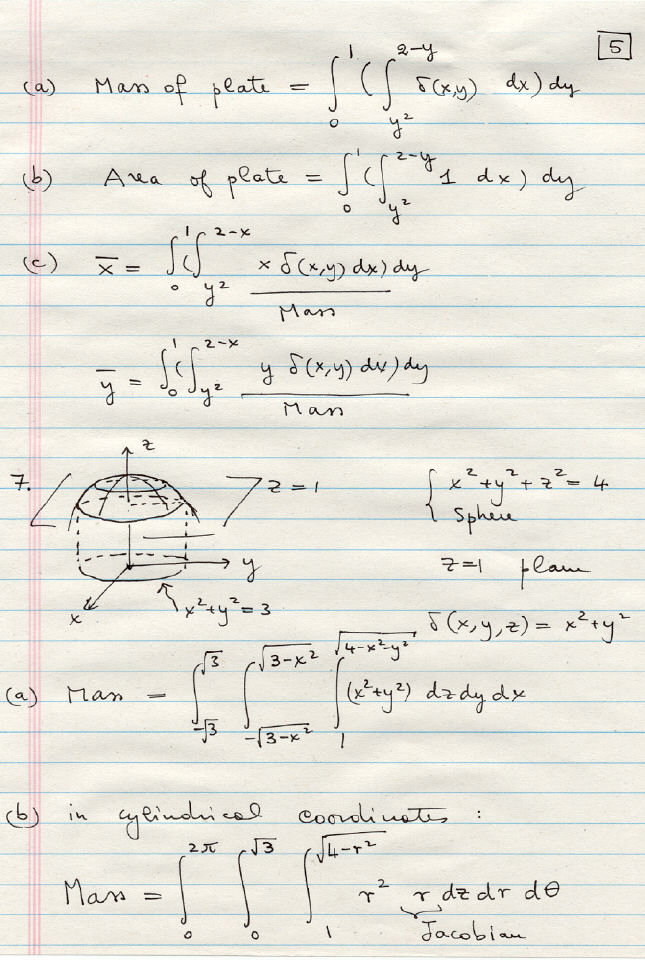 5
(a) Mass of plate = ∫₀¹ (∫_{y²}^{2-y} δ(x,y) dx) dy
(b) Area of plate = ∫₀¹ (∫_{y²}^{2-y} 1 dx) dy
(c) x̄ = ∫₀¹ (∫_{y²}^{2-x} x δ(x,y) dx) dy
Mass
ȳ = ∫₀¹ (∫_{y²}^{2-x} y δ(x,y) dx) dy
Mass
7. z z = 1 { x² + y² + z² = 4
Sphere
y z=1 plane
x x²+y² = 3
δ(x,y,z) = x²+y²
(a) Mass = ∫_{-√3}^{√3} ∫_{-√(3-x²)}^{√(3-x²)} ∫₁^{√(4-x²-y²)} (x²+y²) dz dy dx
(b) in cylindrical coordinates :
Mass = ∫₀^{2π} ∫₀^{√3} ∫₁^{√(4-r²)} r² r dz dr dθ
Jacobian